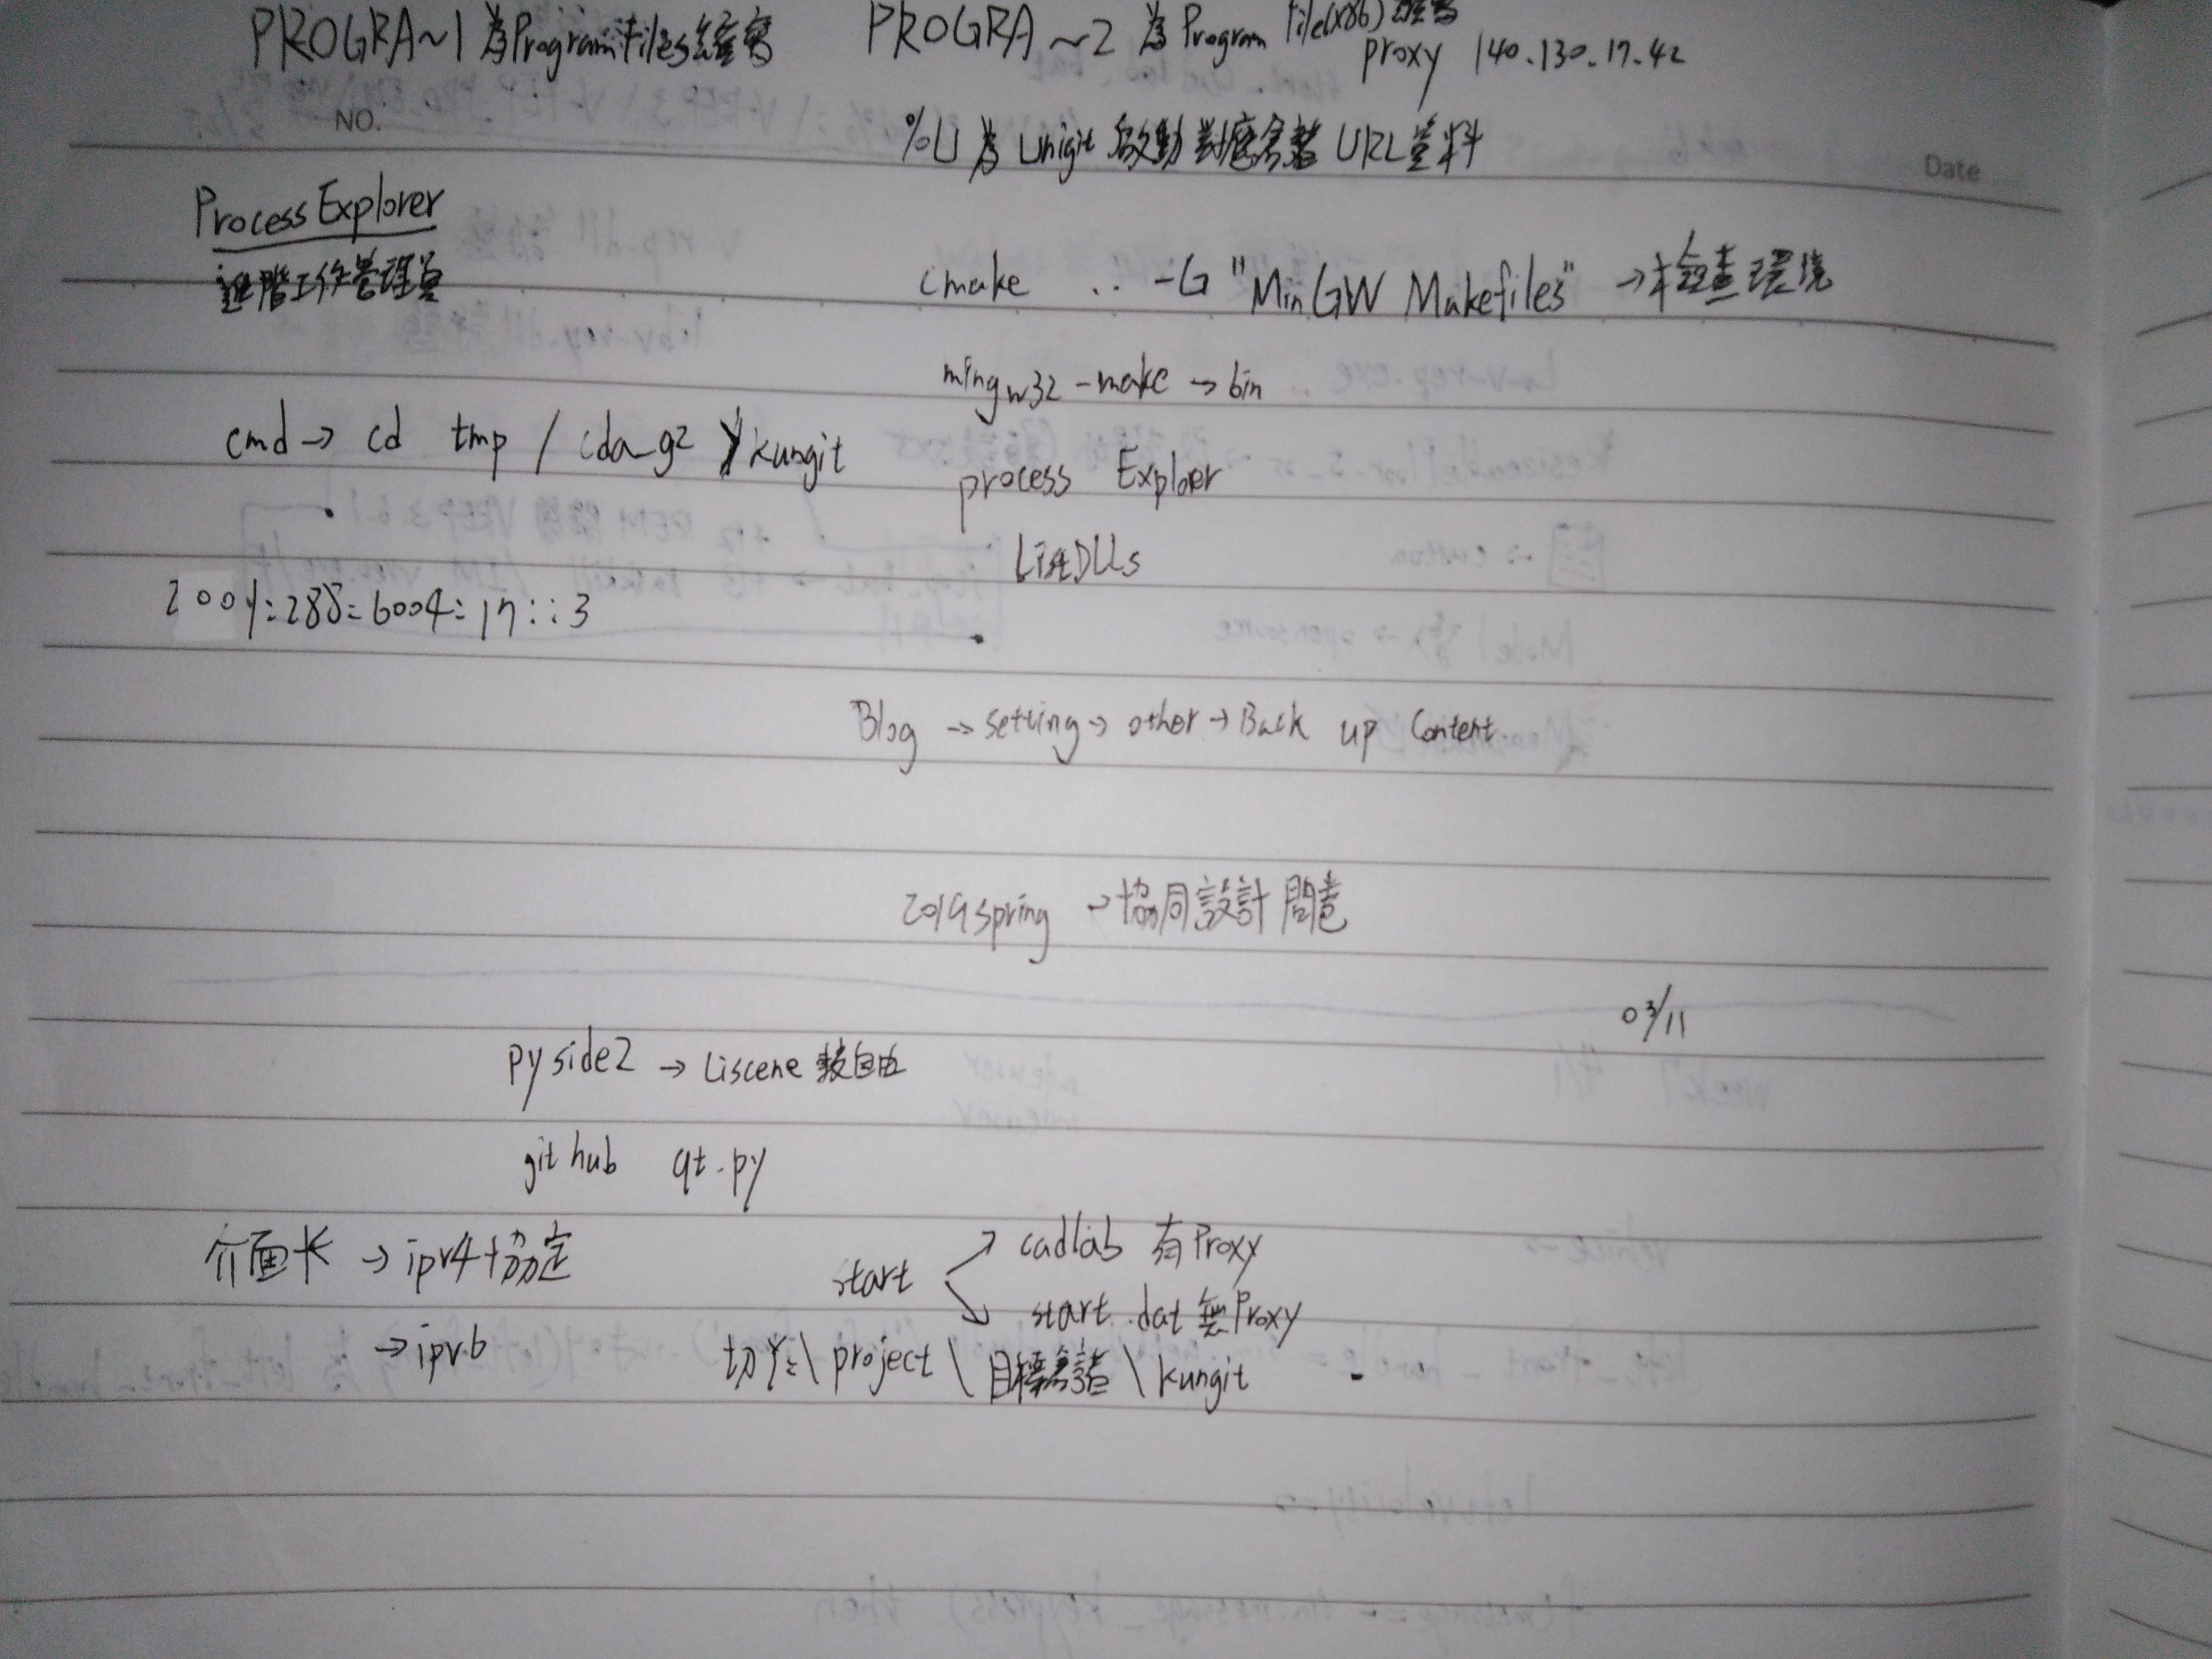 PROGRA~1 為Program Files縮寫
PROGRA~2 為 Program File(x86)縮寫
proxy 140.130.17.42
NO.
%U 為 Unigit 啟動對應倉儲 URL資料
Date
Process Explorer
進階工作管理員
cmake .. -G "MinGW Makefiles" →檢查環境
mingw32-make → bin
cmd → cd tmp / cda_g2 kungit
process Explorer
ListDLLs
2001:288:6004:17::3
Blog → setting → other → Back up Content.
2019spring → 協同設計 問卷
03/11
pyside2 → Liscene 較自由
github qt.py
介面卡 → ipv4協定
→ ipv6
start
↗ cadlab 有Proxy
↘ start.dat 無Proxy
切Y:\ project \ 目標倉儲 \ kungit